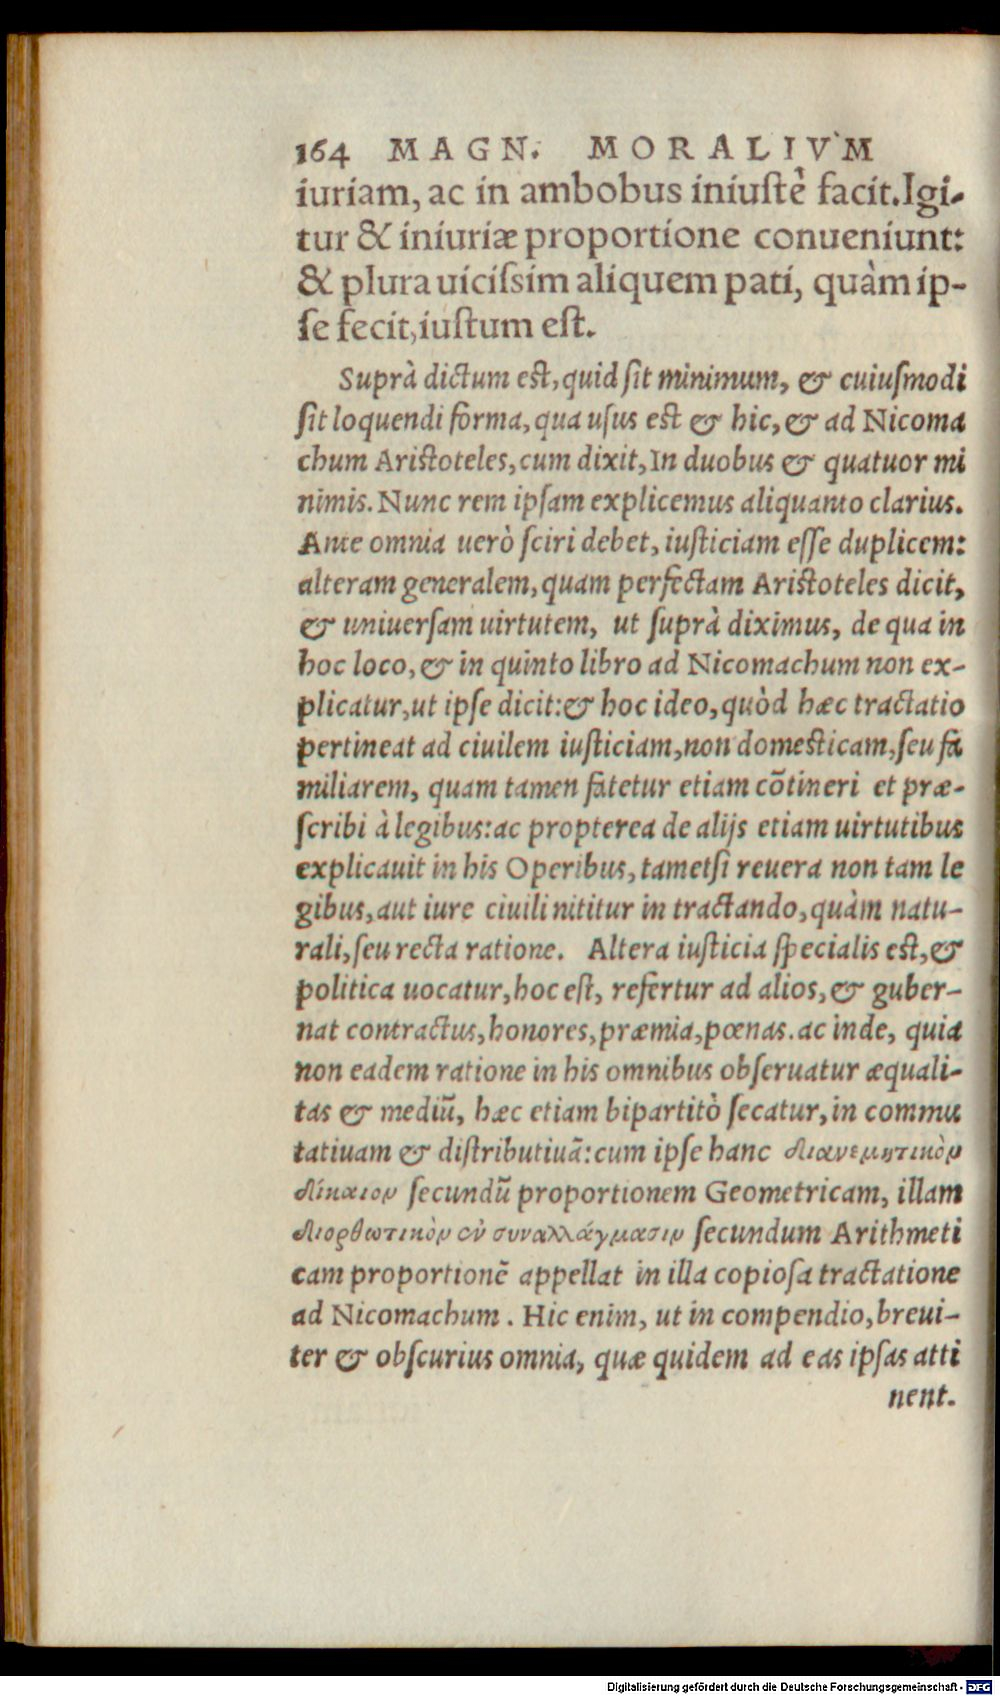 164 MAGN. MORALIVM
iuriam, ac in ambobus iniustè facit. Igi-
tur & iniuriæ proportione conueniunt:
& plura uicissim aliquem pati, quàm ip-
se fecit, iustum est.
Suprà dictum est, quid sit minimum, & cuiusmodi
sit loquendi forma, qua usus est & hic, & ad Nicoma
chum Aristoteles, cum dixit, In duobus & quatuor mi
nimis. Nunc rem ipsam explicemus aliquanto clarius.
Ante omnia uerò sciri debet, iusticiam esse duplicem:
alteram generalem, quam perfectam Aristoteles dicit,
& uniuersam uirtutem, ut suprà diximus, de qua in
hoc loco, & in quinto libro ad Nicomachum non ex-
plicatur, ut ipse dicit: & hoc ideo, quòd hæc tractatio
pertineat ad ciuilem iusticiam, non domesticam, seu fa
miliarem, quam tamen fatetur etiam cõtineri et præ-
scribi à legibus: ac propterea de alijs etiam uirtutibus
explicauit in his Operibus, tametsi reuera non tam le
gibus, aut iure ciuili nititur in tractando, quàm natu-
rali, seu recta ratione. Altera iusticia specialis est, &
politica uocatur, hoc est, refertur ad alios, & guber-
nat contractus, honores, præmia, pœnas. ac inde, quia
non eadem ratione in his omnibus obseruatur æquali-
tas & mediũ, hæc etiam bipartitò secatur, in commu
tatiuam & distributiuã: cum ipse hanc διανεμητικὸν
δίκαιον secundũ proportionem Geometricam, illam
διορθωτικὸν ἐν συναλλάγμασιν secundum Arithmeti
cam proportionẽ appellat in illa copiosa tractatione
ad Nicomachum. Hic enim, ut in compendio, breui-
ter & obscurius omnia, quæ quidem ad eas ipsas atti
nent.
Digitalisierung gefördert durch die Deutsche Forschungsgemeinschaft - DFG